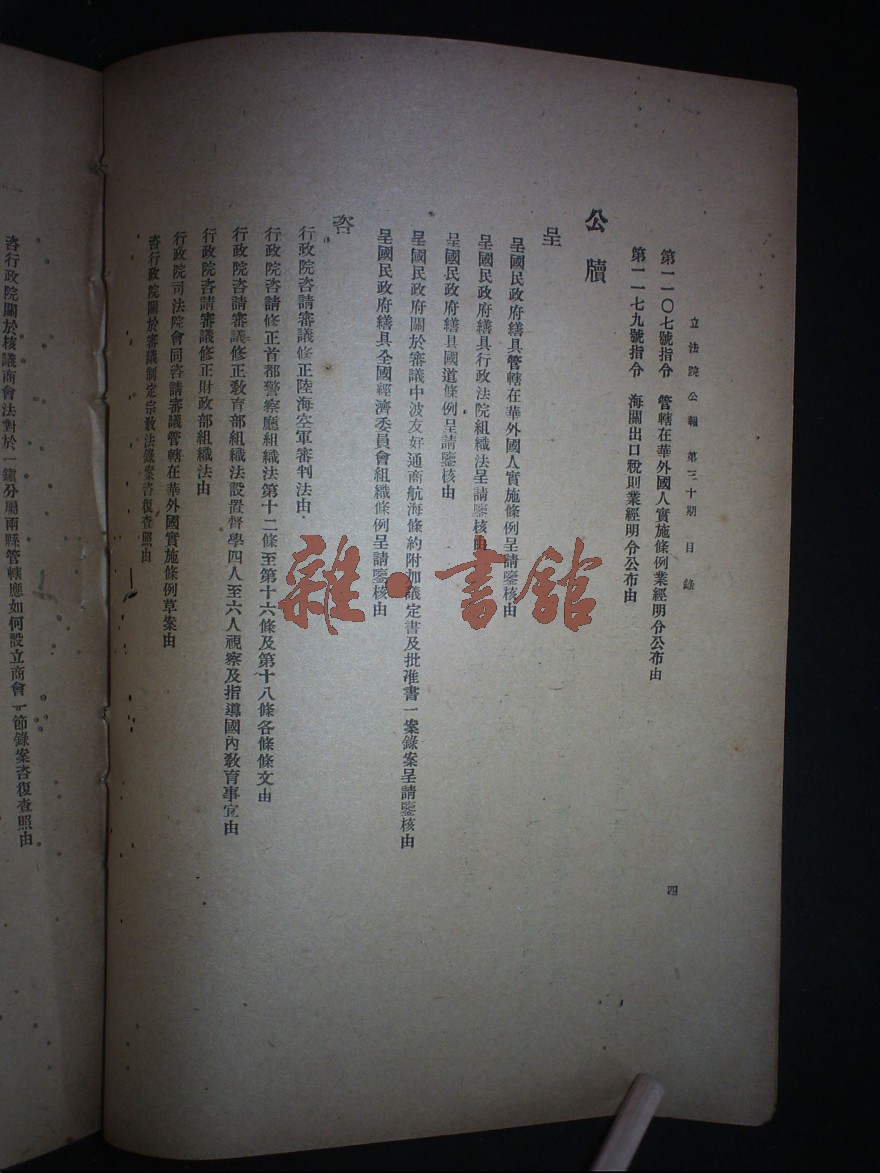 立法院公報 第三十期 目錄
四
第一一〇七號指令 管轄在華外國人實施條例業經明令公布由
第一一七九號指令 海關出口稅則業經明令公布由
公牘
呈
呈國民政府繕具管轄在華外國人實施條例呈請鑒核由
呈國民政府繕具行政法院組織法呈請鑒核由
呈國民政府繕具國道條例呈請鑒核由
呈國民政府關於審議中波友好通商航海條約附加議定書及批准書一案錄案呈請鑒核由
呈國民政府繕具全國經濟委員會組織條例呈請鑒核由
咨
行政院咨請審議修正陸海空軍審判法由
行政院咨請修正首都警察廳組織法第十二條至第十六條及第十八條各條條文由
行政院咨請審議修正教育部組織法設置督學四人至六人視察及指導國內教育事宜由
行政院咨請審議修正財政部組織法由
行政院司法院會同咨請審議管轄在華外國實施條例草案由
咨行政院關於審議制定宗教法錄案咨復查照由
咨行政院關於核議商會法對於一鎮分屬兩縣管轄應如何設立商會一節錄案咨復查照由
雜·書館